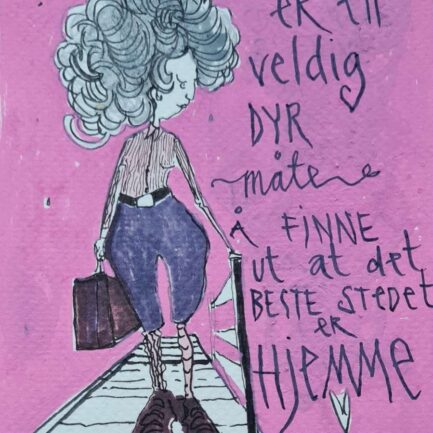 ER en
veldig
DYR
måte
Å FINNE
ut at det
BESTE STEDET
er
HJEMME